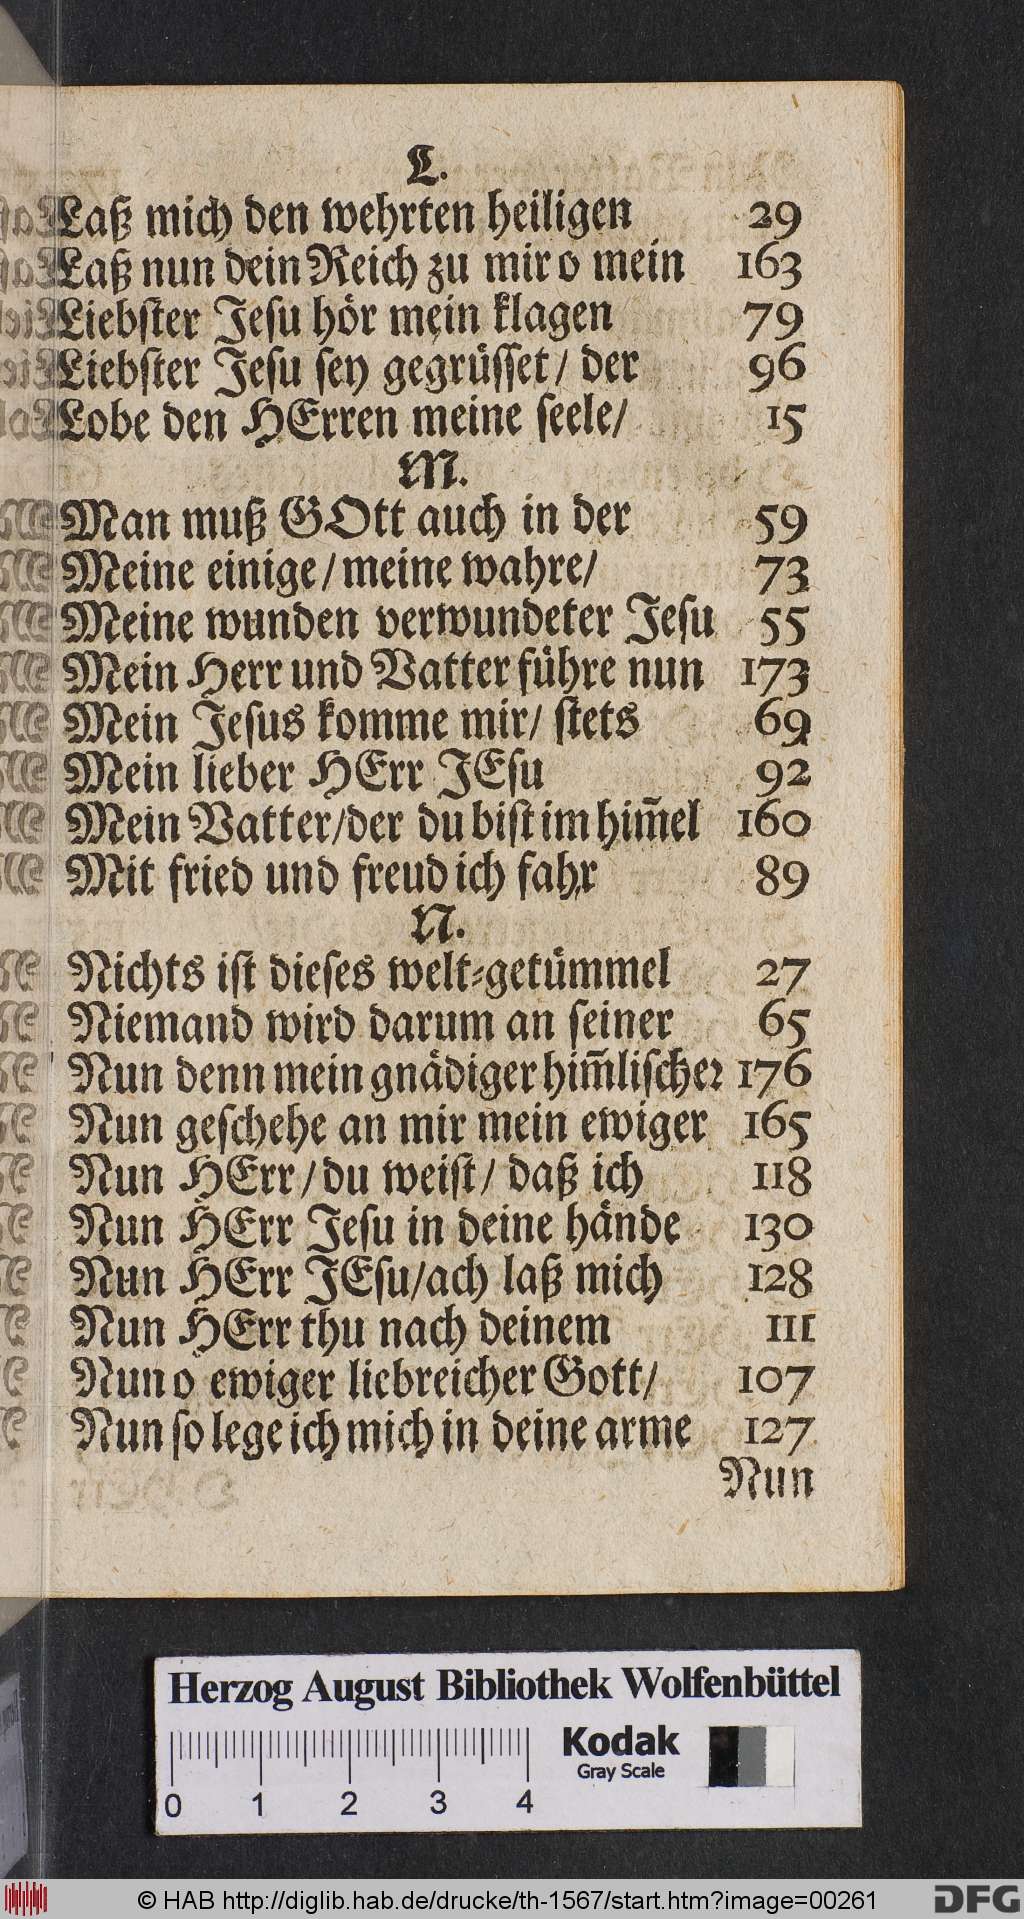 L.
Laß mich den wehrten heiligen 29
Laß nun dein Reich zu mir o mein 163
Liebster Jesu hör mein klagen 79
Liebster Jesu sey gegrüsset/ der 96
Lobe den HErren meine seele/ 15
M.
Man muß GOtt auch in der 59
Meine einige/ meine wahre/ 73
Meine wunden verwundeter Jesu 55
Mein Herr und Vatter führe nun 173
Mein Jesus komme mir/ stets 69
Mein lieber HErr JEsu 92
Mein Vatter/der du bist im him̄el 160
Mit fried und freud ich fahr 89
N.
Nichts ist dieses welt-getümmel 27
Niemand wird darum an seiner 65
Nun denn mein gnädiger him̄lischer 176
Nun geschehe an mir mein ewiger 165
Nun HErr/du weist/ daß ich 118
Nun HErr Jesu in deine hände 130
Nun HErr JEsu/ach laß mich 128
Nun HErr thu nach deinem 111
Nun o ewiger liebreicher Gott/ 107
Nun so lege ich mich in deine arme 127
Nun
Herzog August Bibliothek Wolfenbüttel
Kodak
Gray Scale
0 1 2 3 4
© HAB http://diglib.hab.de/drucke/th-1567/start.htm?image=00261
DFG